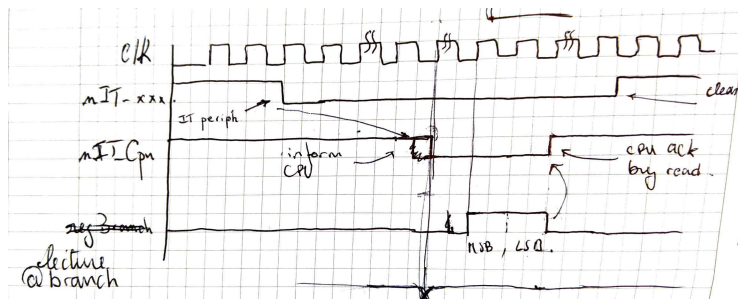 clk
nIT-xxx.
clear
IT periph
nIT_Cpu
inform
CPU
cpu ack
buy read.
reg Branch
MSB, LSB.
lecture
@branch